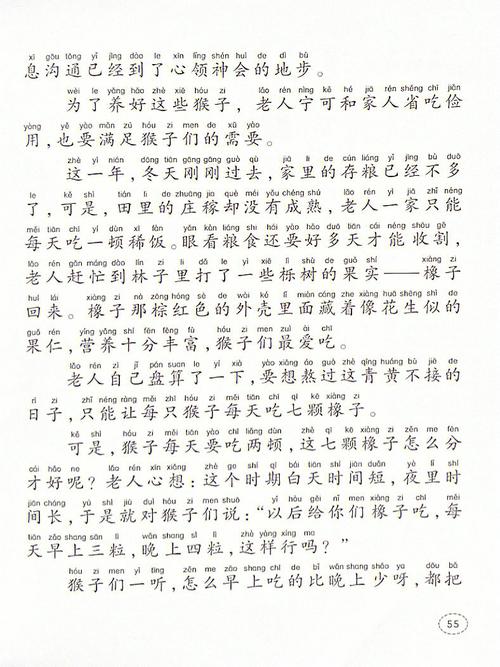 xī gōu tōng yǐ jīng dào le xīn lǐng shén huì de dì bù
息沟通已经到了心领神会的地步。
wèi le yǎng hǎo zhè xiē hóu zi lǎo rén nìng kě hé jiā rén shěng chī jiǎn
为了养好这些猴子，老人宁可和家人省吃俭
yòng yě yào mǎn zú hóu zi men de xū yào
用，也要满足猴子们的需要。
zhè yì nián dōng tiān gāng gāng guò qù jiā li de cún liáng yǐ jīng bù duō
这一年，冬天刚刚过去，家里的存粮已经不多
le kě shì tián li de zhuāng jia què méi yǒu chéng shú lǎo rén yì jiā zhǐ néng
了，可是，田里的庄稼却没有成熟，老人一家只能
měi tiān chī yí dùn xī fàn yǎn kàn liáng shi hái yào hǎo duō tiān cái néng shōu gē
每天吃一顿稀饭。眼看粮食还要好多天才能收割，
lǎo rén gǎn máng dào lín zi li dǎ le yì xiē lì shù de guǒ shí xiàng zi
老人赶忙到林子里打了一些栎树的果实——橡子
huí lái xiàng zi nà zōng hóng sè de wài ké lǐ miàn cáng zhe xiàng huā shēng shì de
回来。橡子那棕红色的外壳里面藏着像花生似的
guǒ rén yíng yǎng shí fēn fēng fù hóu zi men zuì ài chī
果仁，营养十分丰富，猴子们最爱吃。
lǎo rén zì jǐ pán suan le yí xià yào xiǎng áo guò zhè qīng huáng bù jiē de
老人自己盘算了一下，要想熬过这青黄不接的
rì zi zhǐ néng ràng měi zhī hóu zi měi tiān chī qī kē xiàng zi
日子，只能让每只猴子每天吃七颗橡子。
kě shì hóu zi měi tiān yào chī liǎng dùn zhè qī kē xiàng zi zěn me fēn
可是，猴子每天要吃两顿，这七颗橡子怎么分
cái hǎo ne lǎo rén xīn xiǎng zhè ge shí qī bái tiān shí jiān duǎn yè lǐ shí
才好呢？老人心想：这个时期白天时间短，夜里时
jiān cháng yú shì jiù duì hóu zi men shuō yǐ hòu gěi nǐ men xiàng zi chī měi
间长，于是就对猴子们说：“以后给你们橡子吃，每
tiān zǎo shang sān lì wǎn shang sì lì zhè yàng xíng ma
天早上三粒，晚上四粒，这样行吗？”
hóu zi men yì tīng zěn me zǎo shang chī de bǐ wǎn shang shǎo ya dōu bǎ
猴子们一听，怎么早上吃的比晚上少呀，都把
55